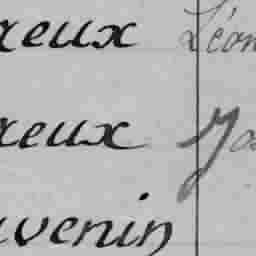 reux Léon
reux
uvenin